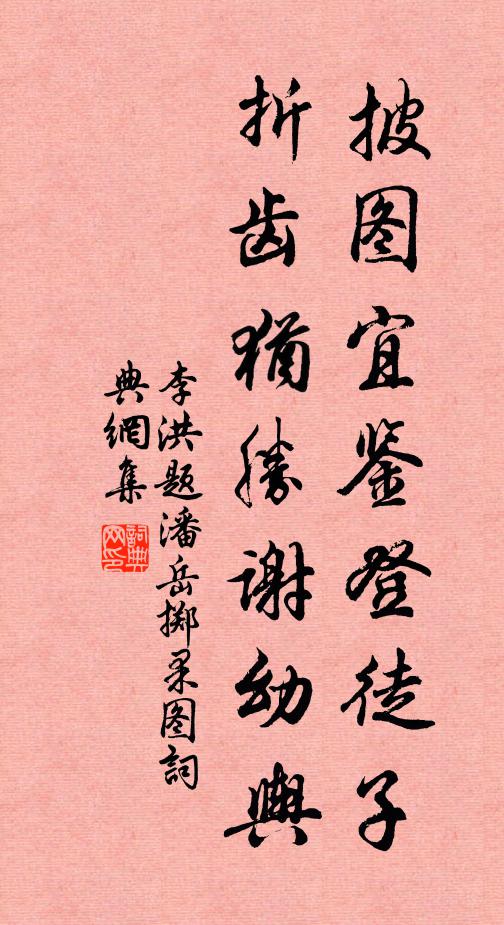 披图宜鉴登徒子
折齿犹勝谢幼輿
李洪题潘岳掷果图詞
典網集
詞典
网印